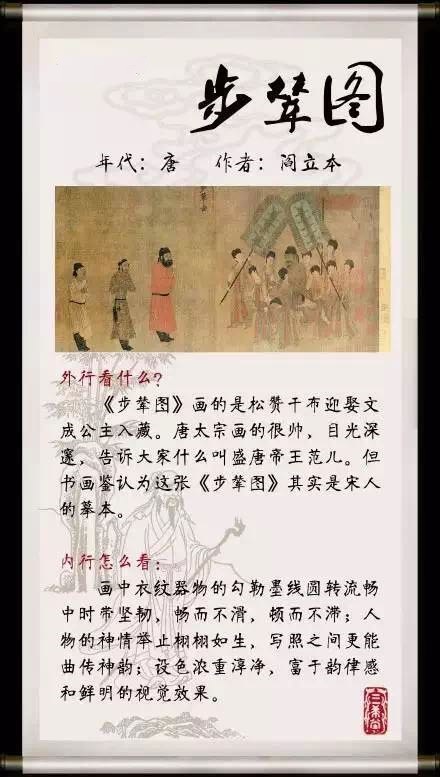 步辇图
年代：唐 作者：阎立本
外行看什么？
《步辇图》画的是松赞干布迎娶文
成公主入藏。唐太宗画的很帅，目光深
邃，告诉大家什么叫盛唐帝王范儿。但
书画鉴认为这张《步辇图》其实是宋人
的摹本。
内行怎么看：
画中衣纹器物的勾勒墨线圆转流畅
中时带坚韧，畅而不滑，顿而不滞；人
物的神情举止栩栩如生，写照之间更能
曲传神韵；设色浓重淳净，富于韵律感
和鲜明的视觉效果。